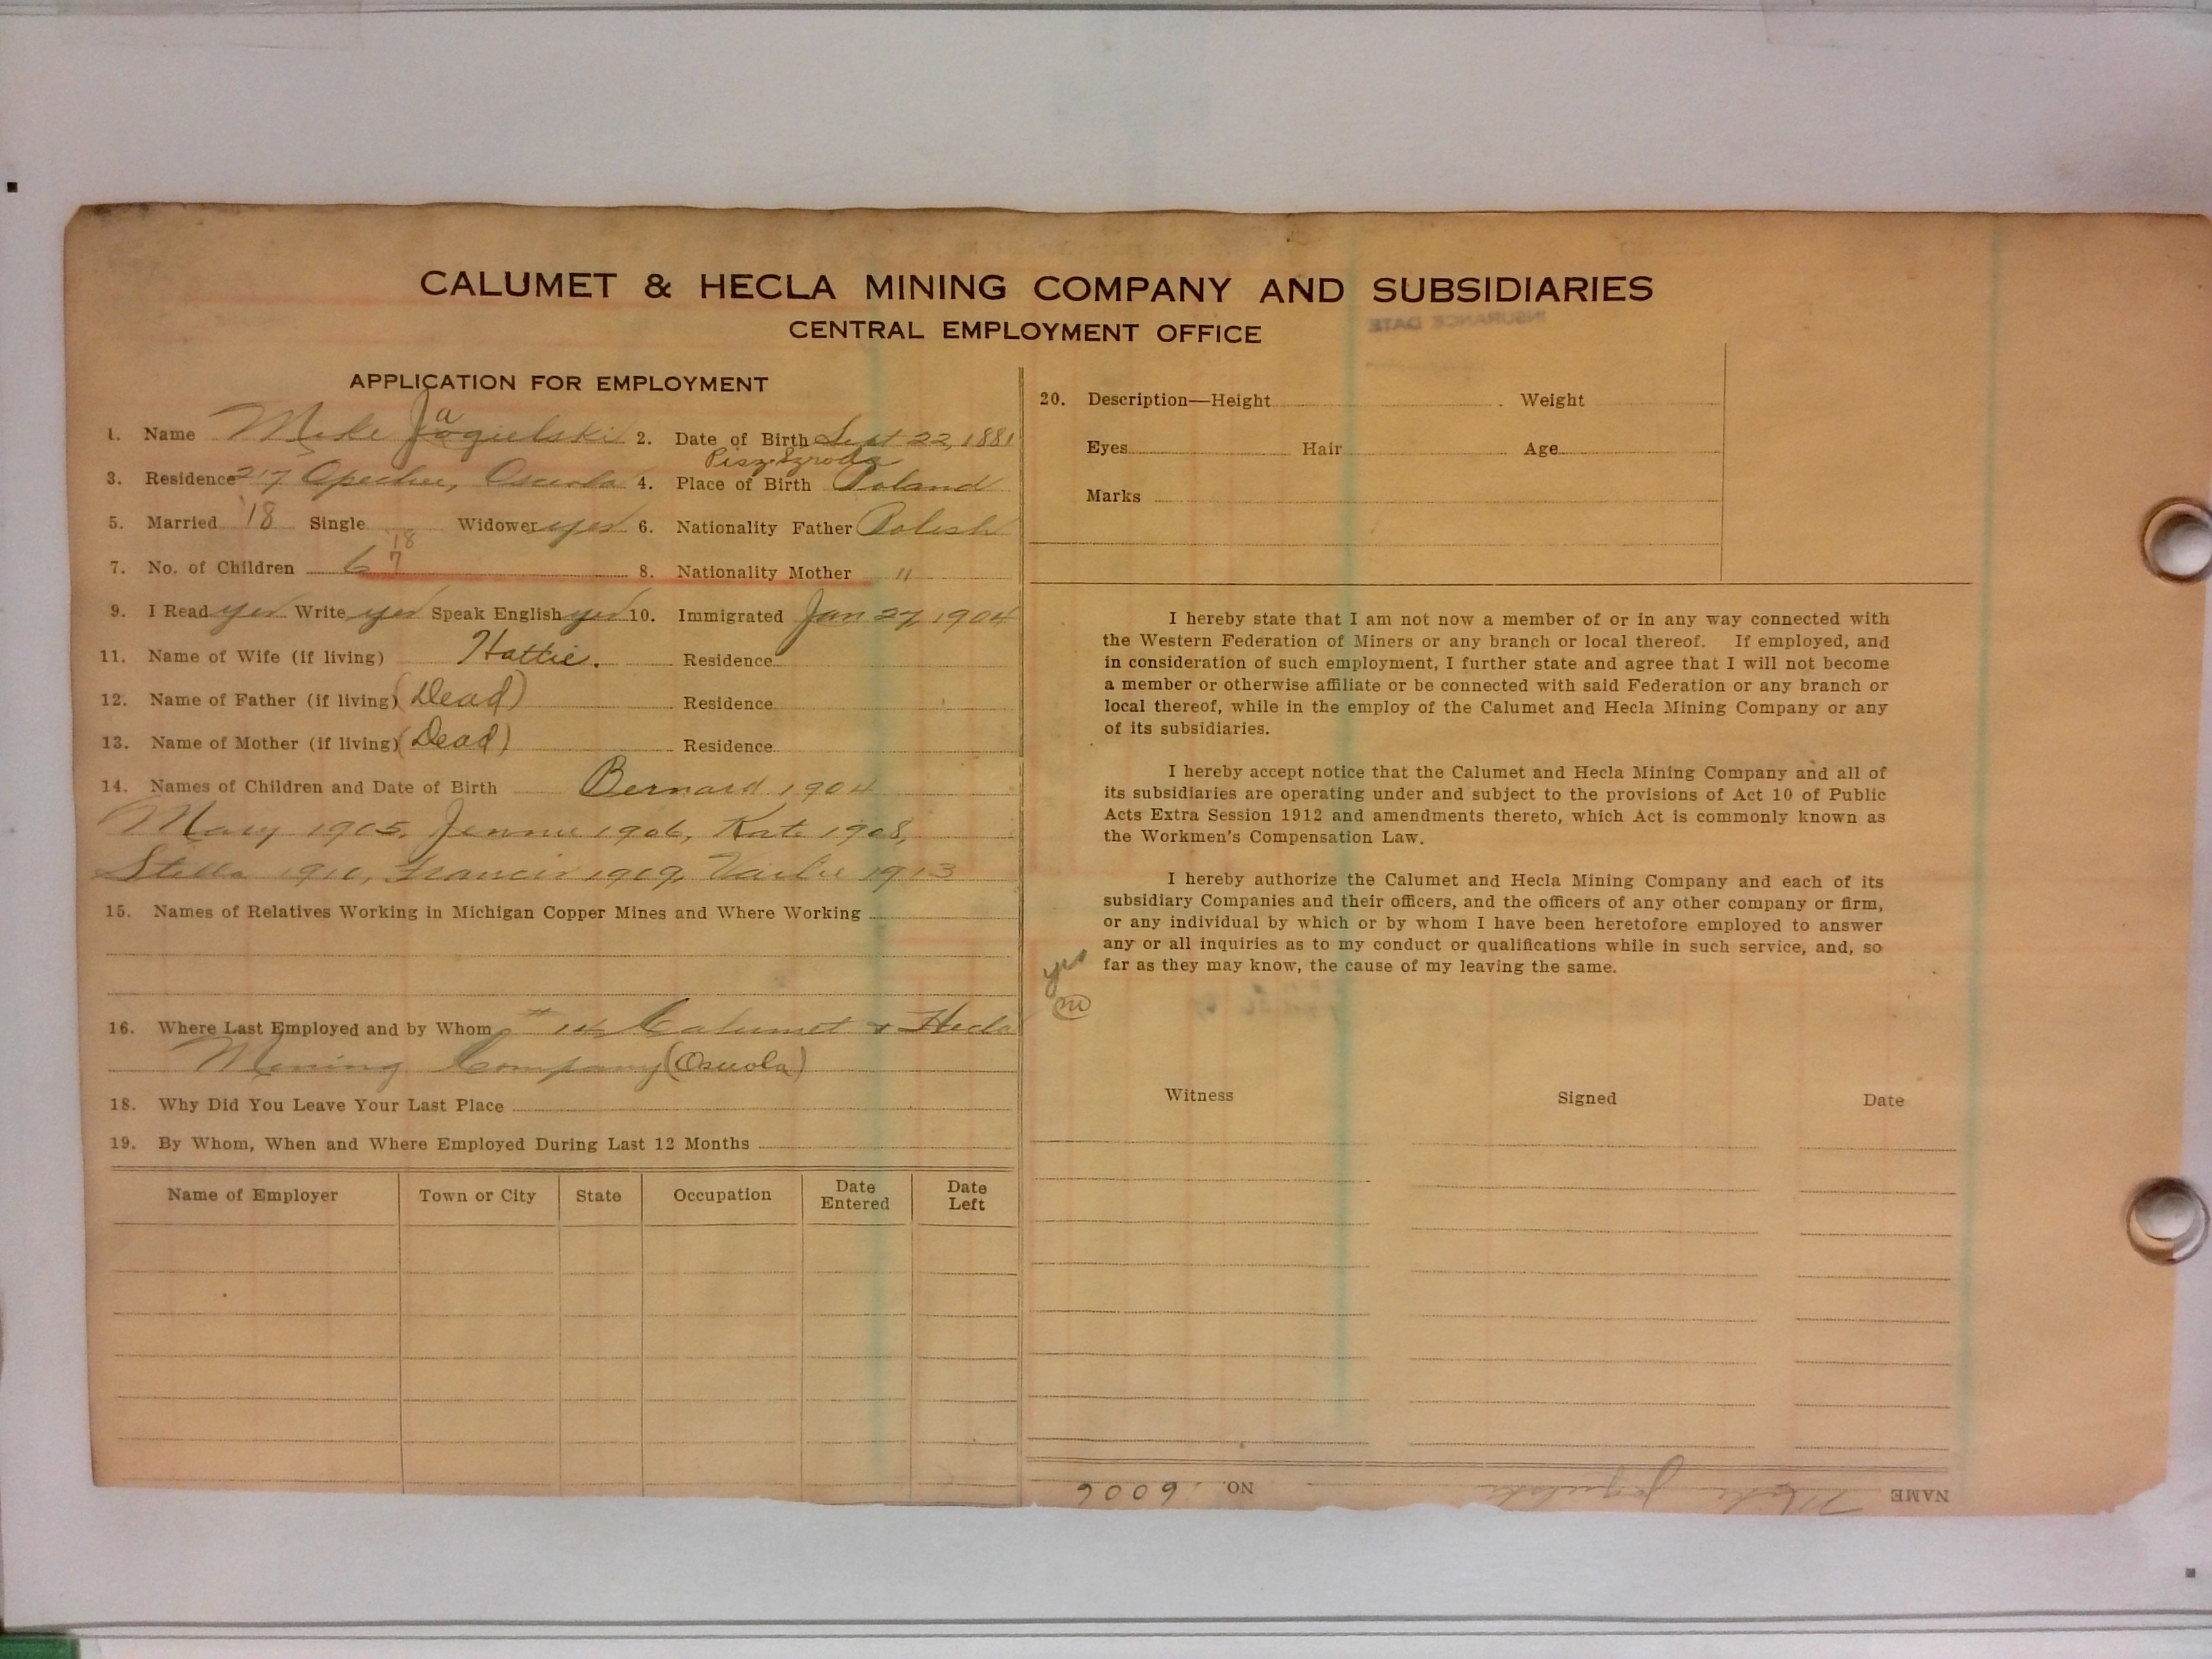 CALUMET & HECLA MINING COMPANY AND SUBSIDIARIES
CENTRAL EMPLOYMENT OFFICE
INSURANCE DATE
APPLICATION FOR EMPLOYMENT
1. Name Mike Jagielski 2. Date of Birth Sept 22, 1881
3. Residence 217 Opechee, Osceola 4. Place of Birth Poland
5. Married '18 Single Widower yes 6. Nationality Father Polish
18
7. No. of Children 6 7 8. Nationality Mother "
9. I Read yes Write yes Speak English yes 10. Immigrated Jan 27, 1904
11. Name of Wife (if living) Hattie. Residence
12. Name of Father (if living) (Dead) Residence
13. Name of Mother (if living) (Dead) Residence
14. Names of Children and Date of Birth Bernard 1904
Mary 1905, Jennie 1906, Kate 1908,
Stella 1910, Francis 1909, 1913
15. Names of Relatives Working in Michigan Copper Mines and Where Working
16. Where Last Employed and by Whom # 14 Calumet & Hecla
Mining Company (Osceola)
18. Why Did You Leave Your Last Place
19. By Whom, When and Where Employed During Last 12 Months
Name of Employer Town or City State Occupation Date Entered Date Left
20. Description—Height Weight
Eyes Hair Age
Marks
I hereby state that I am not now a member of or in any way connected with
the Western Federation of Miners or any branch or local thereof. If employed, and
in consideration of such employment, I further state and agree that I will not become
a member or otherwise affiliate or be connected with said Federation or any branch or
local thereof, while in the employ of the Calumet and Hecla Mining Company or any
of its subsidiaries.
I hereby accept notice that the Calumet and Hecla Mining Company and all of
its subsidiaries are operating under and subject to the provisions of Act 10 of Public
Acts Extra Session 1912 and amendments thereto, which Act is commonly known as
the Workmen's Compensation Law.
I hereby authorize the Calumet and Hecla Mining Company and each of its
subsidiary Companies and their officers, and the officers of any other company or firm,
or any individual by which or by whom I have been heretofore employed to answer
any or all inquiries as to my conduct or qualifications while in such service, and, so
far as they may know, the cause of my leaving the same.
yes
Witness Signed Date
NAME Mike Jagielski NO. 6006